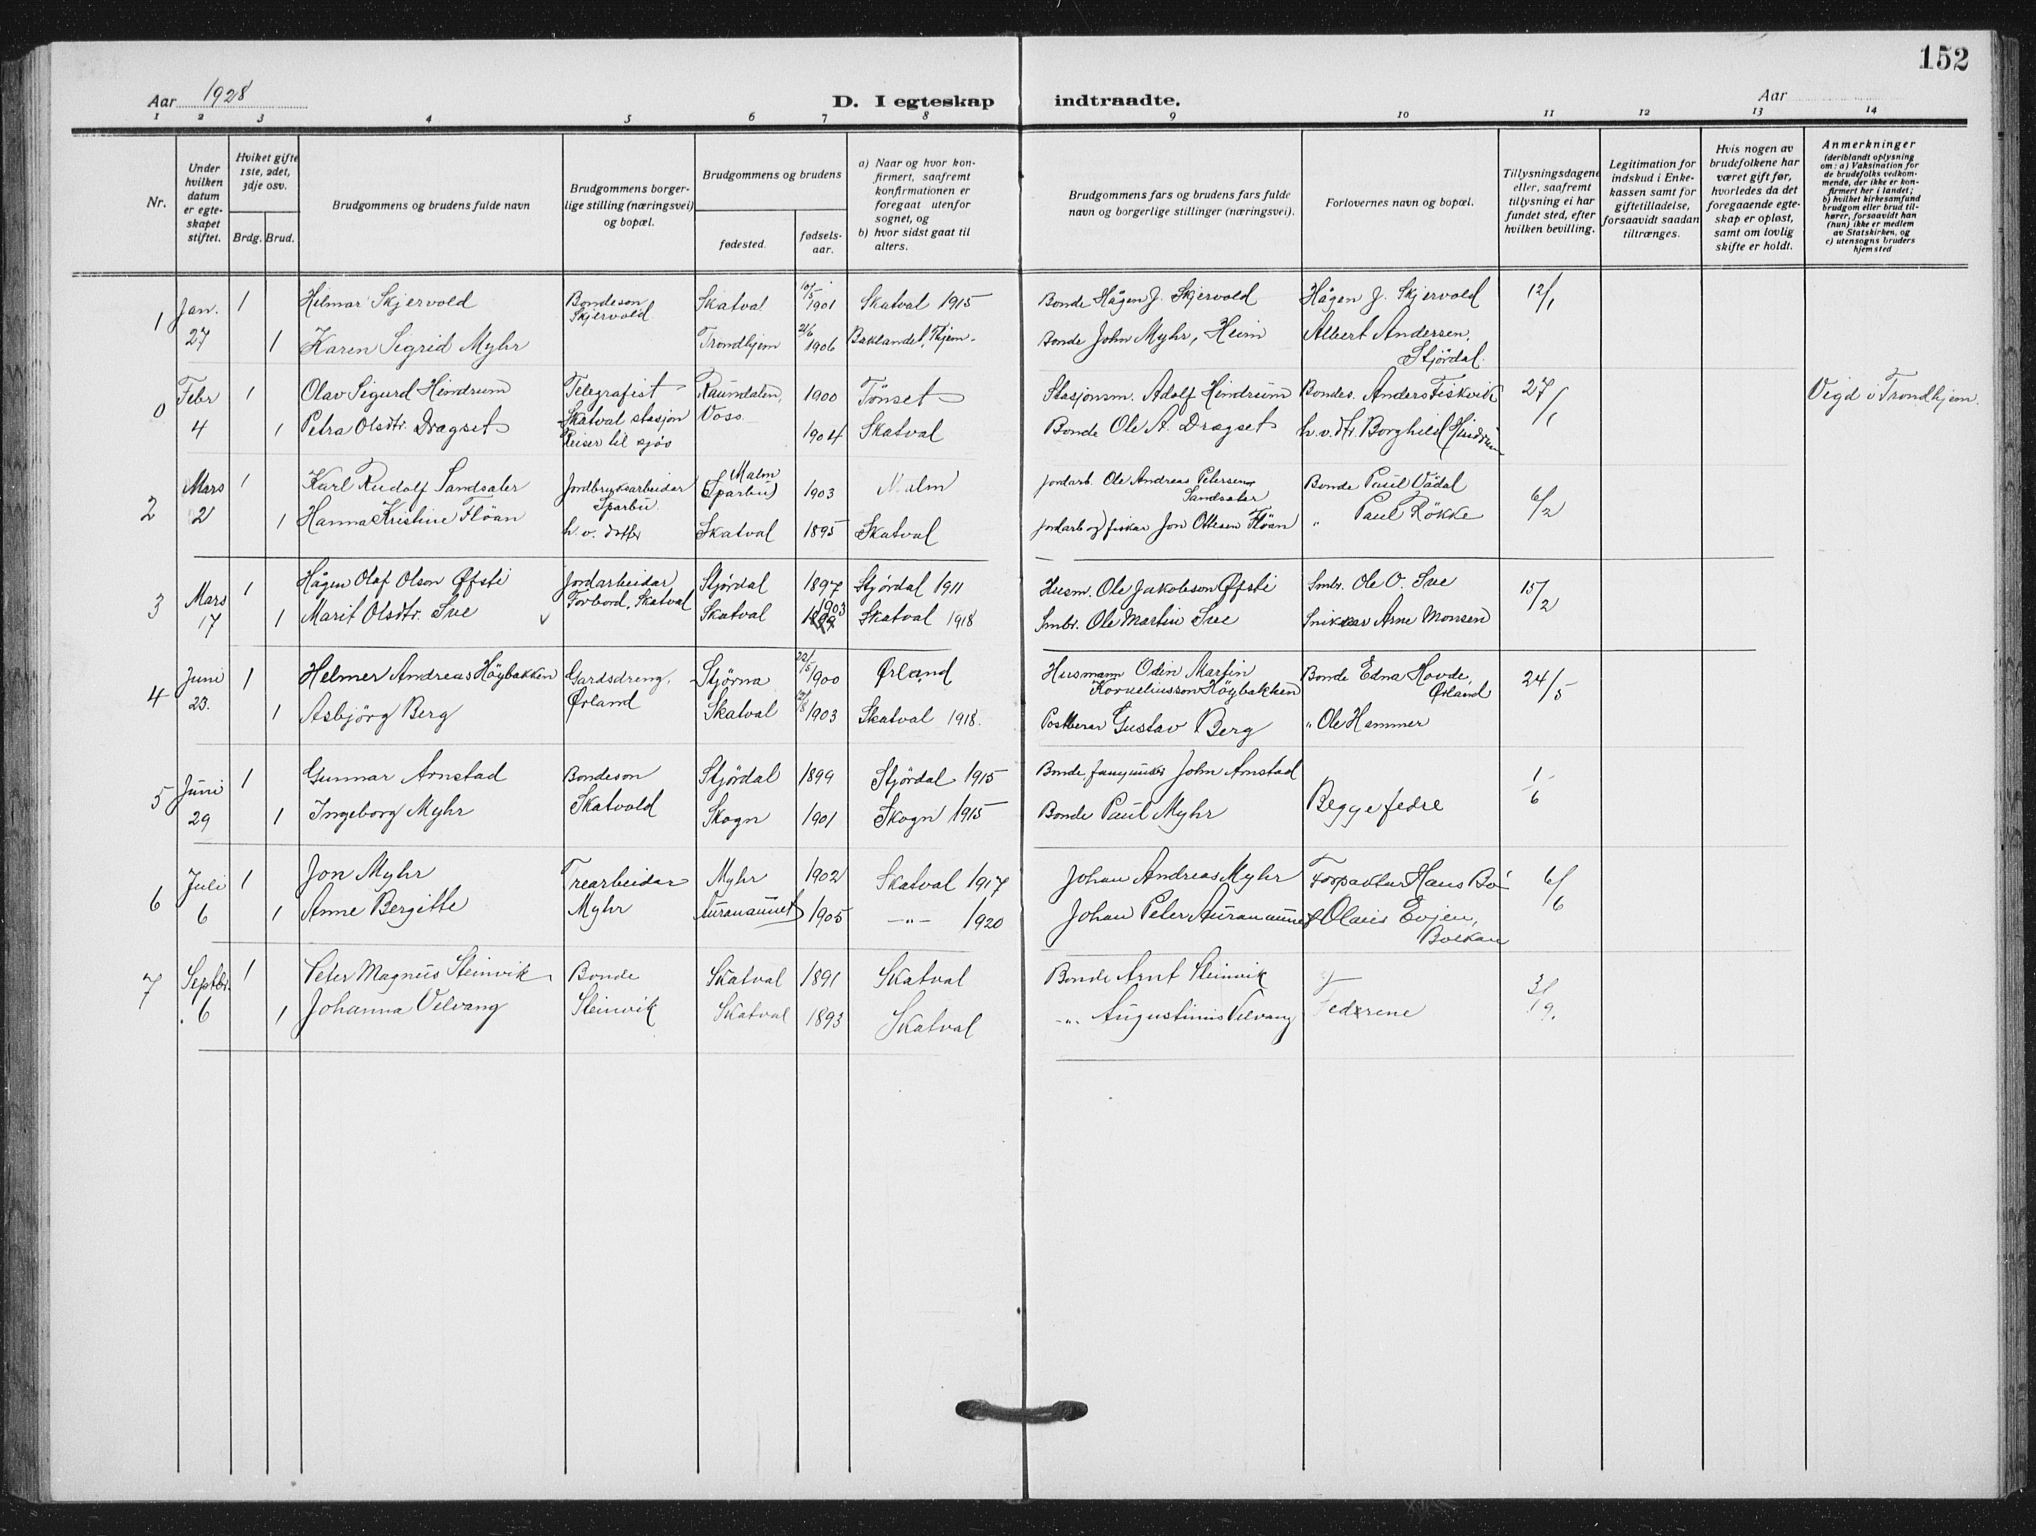 152
Aar 1928
D. I egteskap indtraadte.
Aar
1 2 3 4 5 6 7 8 9 10 11 12 13 14
Nr.
Under hvilken datum er egteskapet stiftet.
Hviket gifte 1ste, 2det, 3dje osv.
Brdg. Brud.
Brudgommens og brudens fulde navn
Brudgommens borgerlige stilling (næringsvei) og bopæl.
Brudgommens og brudens
fødested.
fødselsaar.
a) Naar og hvor konfirmert, saafremt konfirmationen er foregaat utenfor sognet, og
b) hvor sidst gaat til alters.
Brudgommens fars og brudens fars fulde navn og borgerlige stillinger (næringsvei).
Forlovernes navn og bopæl.
Tillysningsdagene eller, saafremt tillysning ei har fundet sted, efter hvilken bevilling.
Legitimation for indskud i Enkekassen samt for giftetilladelse, forsaavidt saadan tiltrænges.
Hvis nogen av brudefolkene har været gift før, hvorledes da det foregaaende egteskap er opløst, samt om lovlig skifte er holdt.
Anmerkninger
(deriblandt oplysning om: a) Vaksination for de brudefolks vedkommende, der ikke er konfirmert her i landet; b) hvilket kirkesamfund brudgom eller brud tilhører, forsaavidt han (hun) ikke er medlem av Statskirken, og c) utensogns bruders hjemsted
1 Jan. 27 1 Hilmar Skjervold Bondeson Skjervold Skatval 10/5 1901 Skatval 1915 Bonde Hågen J. Skjervold Hågen J. Skjervold 12/1
1 Karen Sigrid Myhr Trondhjem 21/6 1906 Baklandet, Thjem. Bonde John Myhr, Heim Albert Andersen, Stjørdal.
0 Febr 4 1 Olav Sigurd Hindrum Telegrafist Skatval stasjon Raundalen, Voss 1900 Tönset Stasjonsm. Adolf Hindrum Bondes. Anders Fiskvik 27/1 Vigd i Trondhjem.
1 Petra Olsdtr. Dragset Reiser til sjøs 1904 Skatval Bonde Ole A. Dragset h. v. dtr. Borghild Hindrum
2 Mars 2 1 Karl Rudolf Sandsaler Jordbruksarbeidar Sparbu. Malm (Sparbu) 1903 Malm jordarb. Ole Andreas Petersen Sandsaler Bonde Paul Vådal 6/2
1 Hanna Kristine Flöan h. v. dotter Skatval 1895 Skatval jordarb og fiskar Jon Ottesen Flöan " Paul Rökke
3 Mars 17 1 Hågen Olaf Olson Øfsti Jordarbeidar Forbord, Skatval Stjørdal 1897 Stjørdal 1911 Husm. Ole Jakobson Øfsti Smbr. Ole O. Sve 15/2
1 Marit Olsdtr. Sve Skatval 1903 1899 Skatval 1918 Smbr. Ole Martin Sve Snikkar Arne Monsen
4 Juni 23. 1 Helmer Andreas Höybakken Gardsdreng, Ørland Stjørna 22/5 1900 Ørland Husmann Odin Martin Korneliusson Höybakken Bonde Edna Hovde, Ørland 24/5
1 Asbjörg Berg Skatval 12/8 1903 Skatval 1918. Postberar Gustav Berg " Ole Hammer
5 Juni 29 1 Gunnar Arnstad Bondeson Skatvold Stjördal 1899 Stjördal 1915 Bonde John Arnstad Begge fedre 1/6
1 Ingeborg Myhr Skogn 1901 Skogn 1915 Bonde Paul Myhr
6 Juli 6 1 Jon Myhr Trearbeidar Myhr Myhr 1902 Skatval 1917 Johan Andreas Myhr Forpaktar Hans Bö 6/6
1 Anne Bergitte Auranaunet 1905 -"- 1920 Johan Peter Auranaunet Olaus Evjen,
7 Septbr. 6 1 Peter Magnus Steinvik Bonde Steinvik Skatval 1891 Skatval Bonde Arnt Steinvik Fedrene 3/9.
1 Johanna Velvang Skatval 1893 Skatval -"- Augustinus Velvang